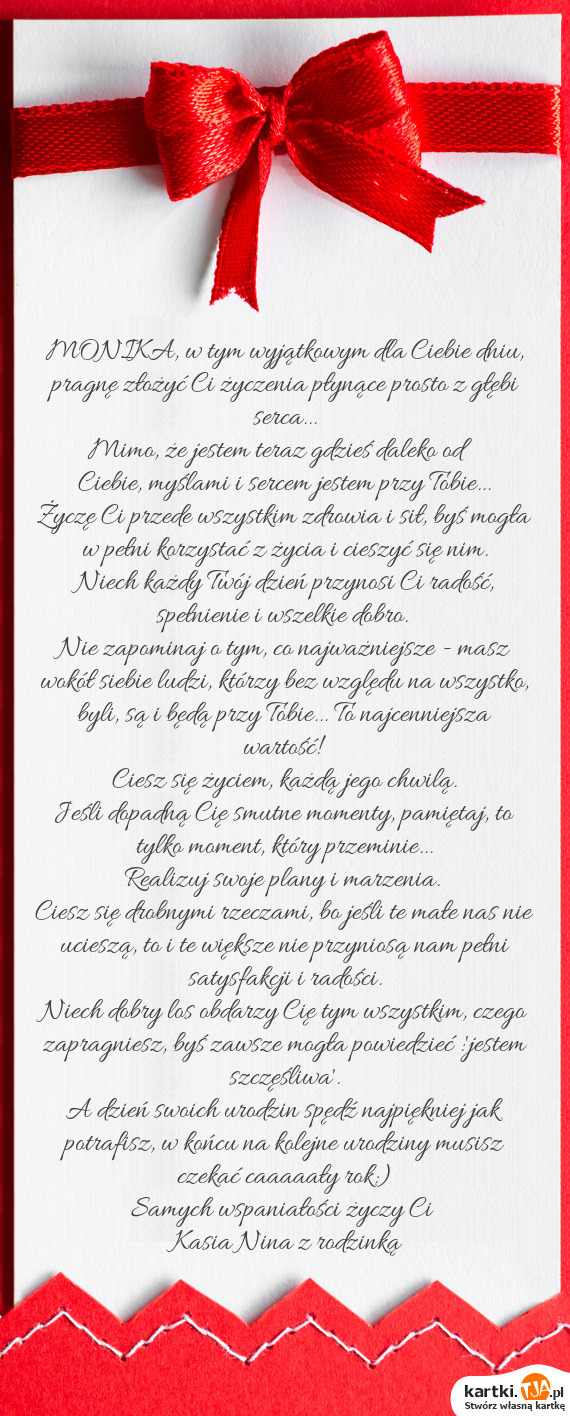 MONIKA, w tym wyjątkowym dla Ciebie dniu,
pragnę złożyć Ci życzenia płynące prosto z głębi
serca...
Mimo, że jestem teraz gdzieś daleko od
Ciebie, myślami i sercem jestem przy Tobie...
Życzę Ci przede wszystkim zdrowia i sił, byś mogła
w pełni korzystać z życia i cieszyć się nim.
Niech każdy Twój dzień przynosi Ci radość,
spełnienie i wszelkie dobro.
Nie zapominaj o tym, co najważniejsze - masz
wokół siebie ludzi, którzy bez względu na wszystko,
byli, są i będą przy Tobie... To najcenniejsza
wartość!
Ciesz się życiem, każdą jego chwilą.
Jeśli dopadną Cię smutne momenty, pamiętaj, to
tylko moment, który przeminie...
Realizuj swoje plany i marzenia.
Ciesz się drobnymi rzeczami, bo jeśli te małe nas nie
ucieszą, to i te większe nie przyniosą nam pełni
satysfakcji i radości.
Niech dobry los obdarzy Cię tym wszystkim, czego
zapragniesz, byś zawsze mogła powiedzieć :'jestem
szczęśliwa'.
A dzień swoich urodzin spędź najpiękniej jak
potrafisz, w końcu na kolejne urodziny musisz
czekać caaaaały rok:)
Samych wspaniałości życzy Ci
Kasia Nina z rodzinką
kartki.TJA.pl
Stwórz własną kartkę